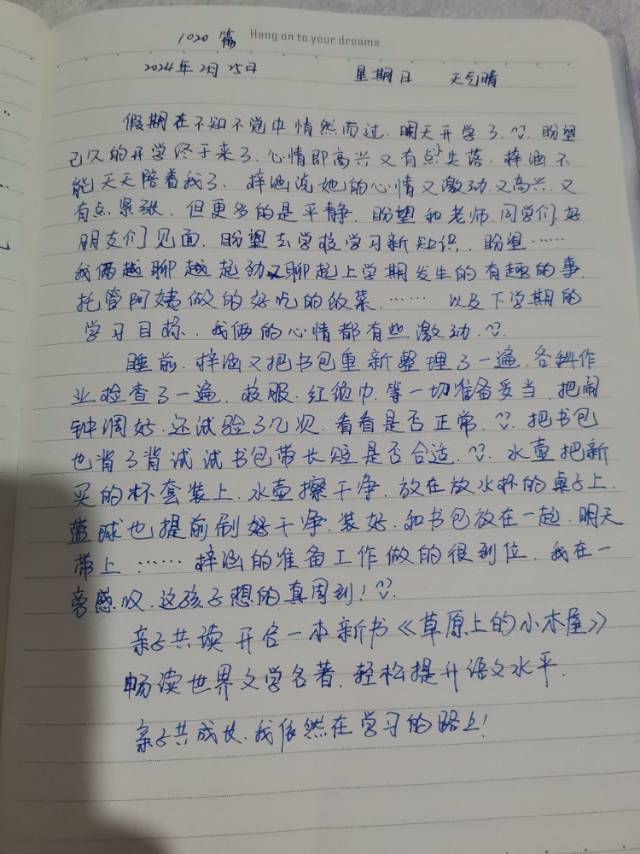 1020篇 Hang on to your dreams
2024年2月25日 星期日 天气晴
假期在不知不觉中悄然而过.明天开学了.盼望
已久的开学终于来了.心情即高兴又有点失落.梓涵不
能天天陪着我了.梓涵说她的心情又激动.又高兴.又
有点紧张.但更多的是平静.盼望和老师.同学们.好
朋友们见面.盼望去学校学习新知识.盼望……
我俩越聊越起劲.又聊起上学期发生的有趣的事
托管阿姨做的好吃的饭菜.……以及下学期的
学习目标.我俩的心情都有些激动.
睡前.梓涵又把书包重新整理了一遍.各科作
业检查了一遍.校服.红领巾.等一切准备妥当.把闹
钟调好.还试验了几次.看看是否正常.把书包
也背了背试试书包带长短是否合适.水壶把新
买的杯套装上.水壶擦干净.放在放水杯的桌子上.
篮球也提前刷好干净.装好.和书包放在一起.明天
带上……梓涵的准备工作做的很到位.我在一
旁感叹.这孩子想的真周到!
亲子共读开启一本新书《草原上的小木屋》
畅读世界文学名著.轻松提升语文水平.
亲子共成长.我依然在学习的路上!